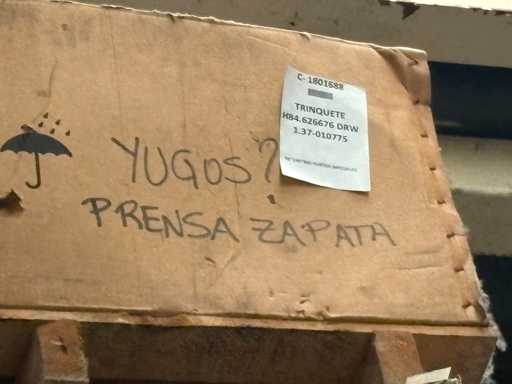 C- 1801688
TRINQUETE
H84.626676 DRW
1.37-010775
YUGOS?
PRENSA ZAPATA